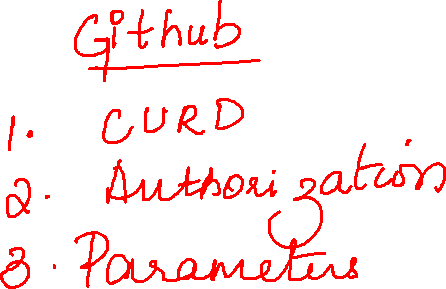 Github
1. CURD
2. Authorization
3. Parameters